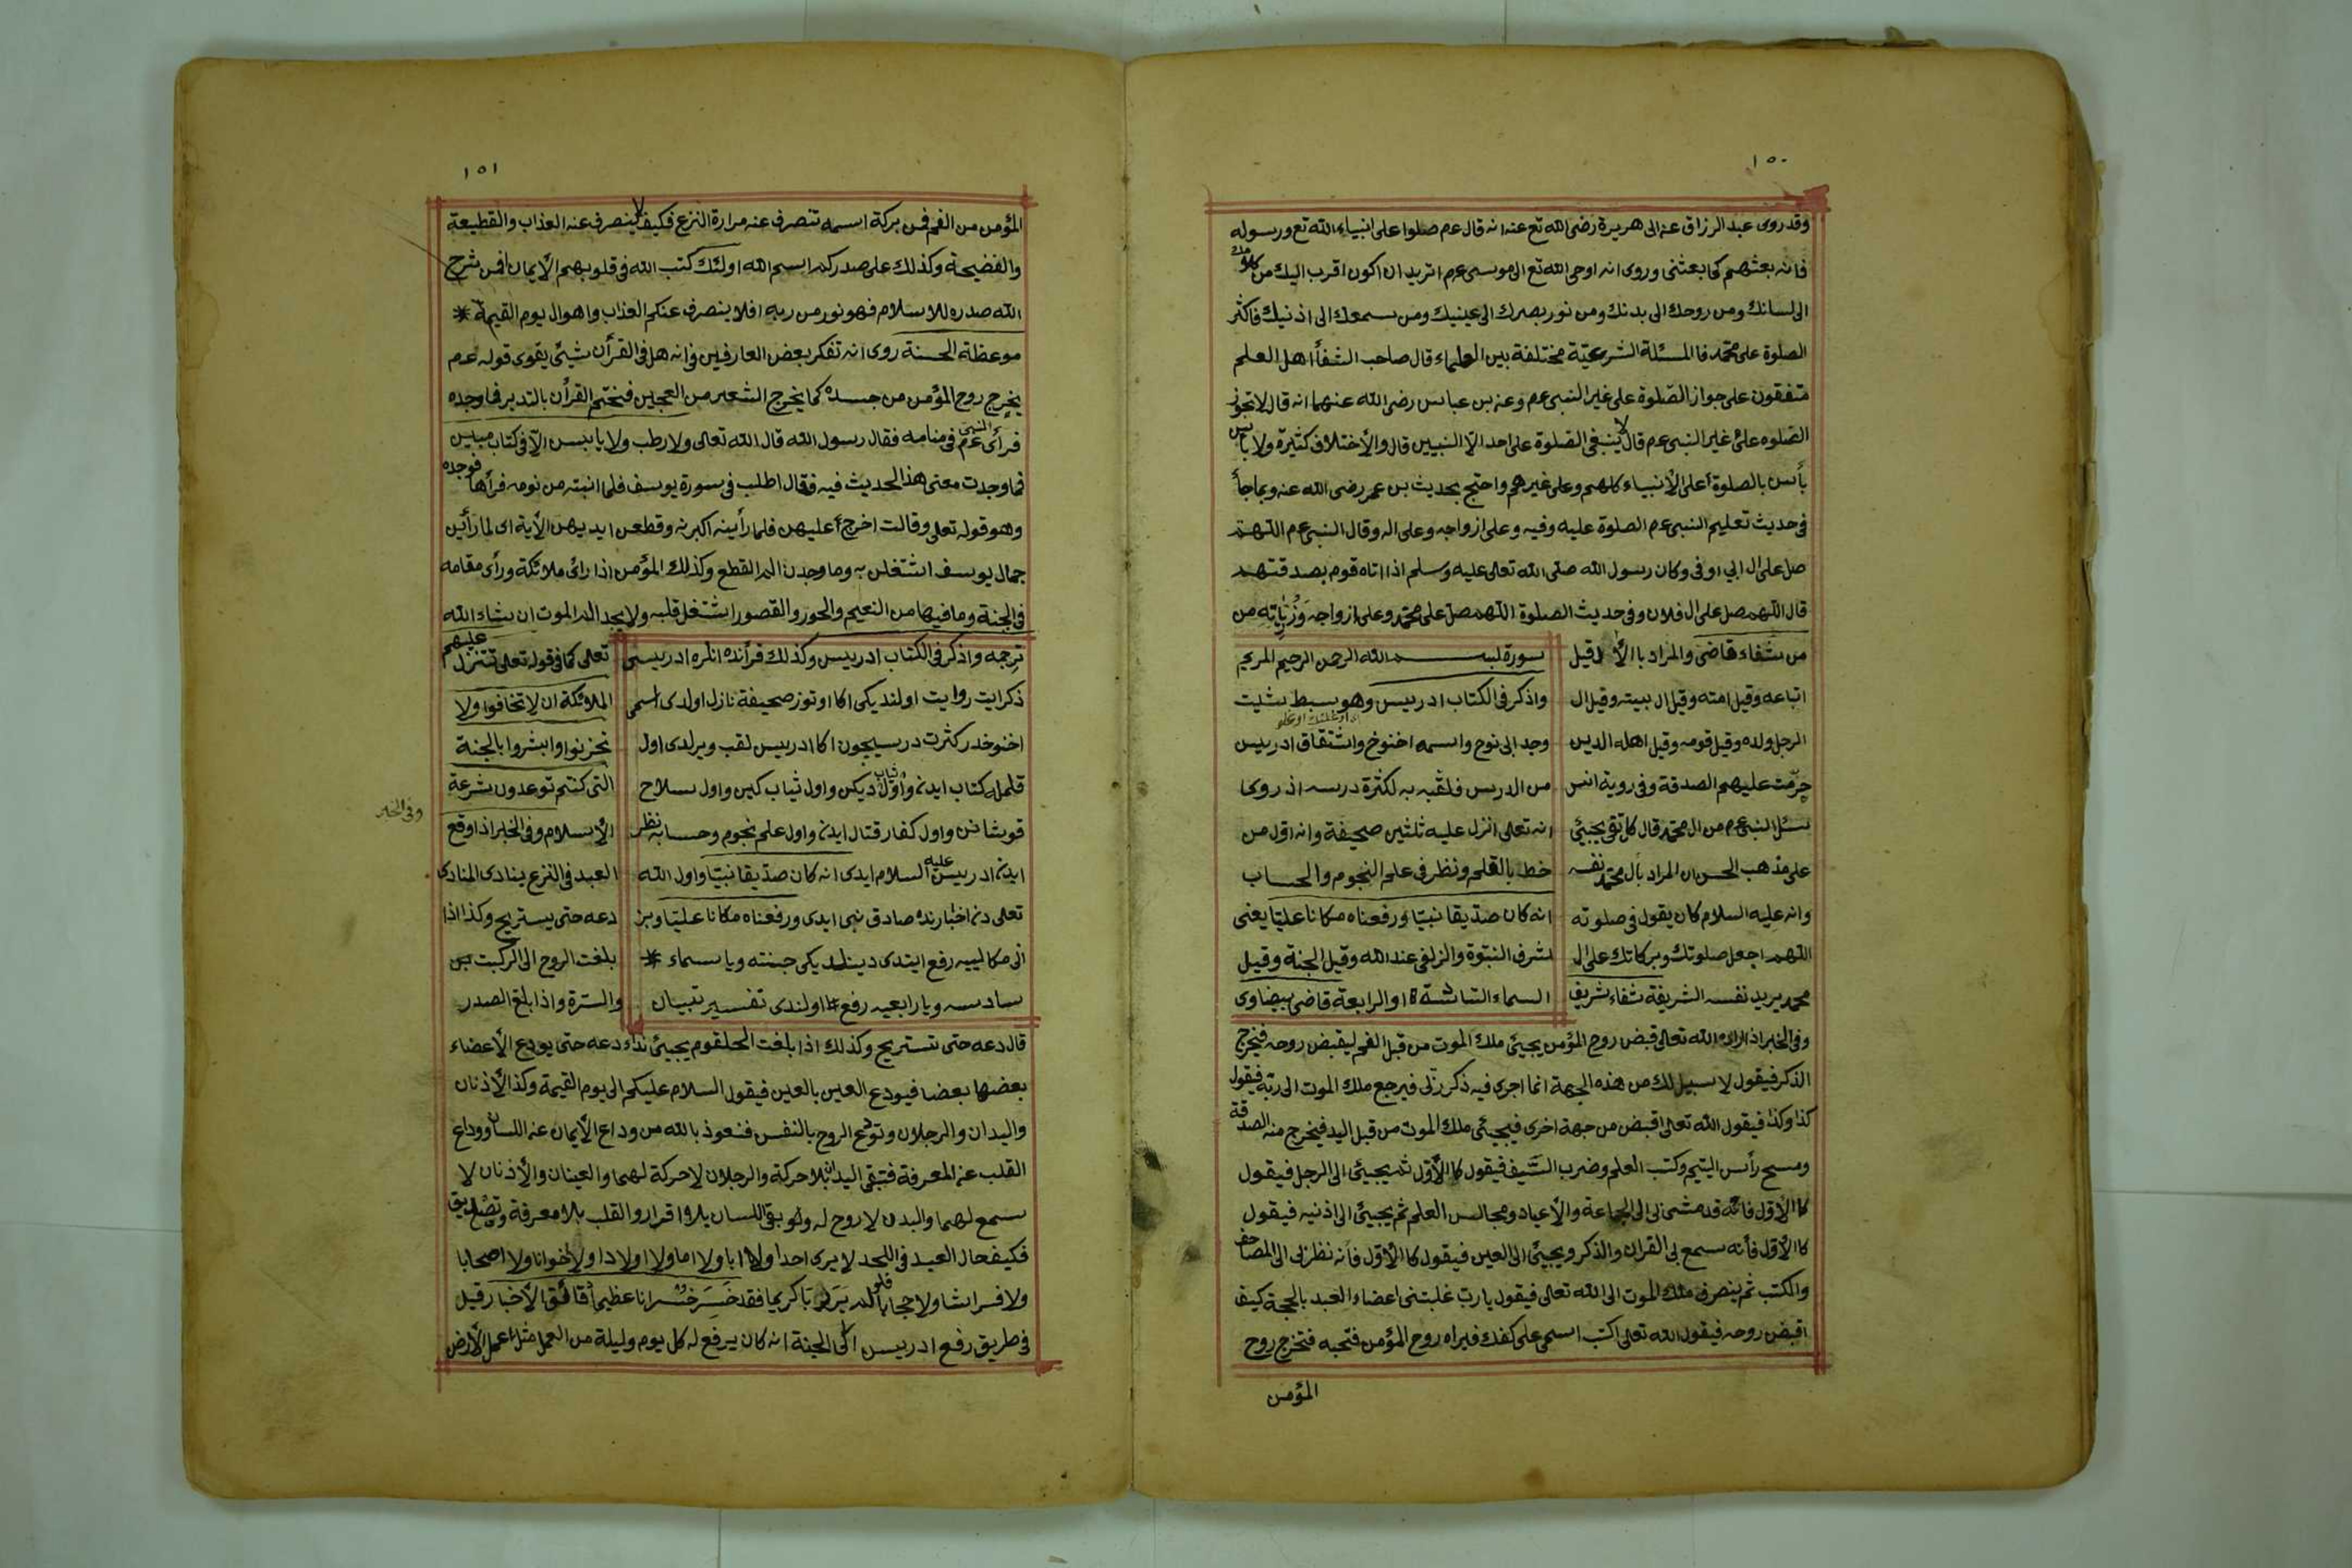 ١٥٠
وقد روى عبد الرزاق عن ابى هريرة رضى الله تع عنه انه قال عم صلوا على انبياء الله تع ورسوله
فانه بعثهم كما بعثنى وروى انه اوحى الله تع الى موسى عم اتريد ان اكون اقرب اليك من كلامك
الى لسانك ومن روحك الى بدنك ومن نور بصرك الى عينيك ومن سمعك الى اذنيك فاكثر
الصلوة على محمد فا المسئلة الشرعيّة مختلفة بين العلماء قال صاحب الشفأ اهل العلم
متفقون على جواز الصّلوة على غير النبى عم وعن بن عباس رضى الله عنهما انه قال لا تجوز
الصّلوه على غير النبى عم قال لا ينبغى الصلوة على احد الّا النبيين قال والأختلاف كثيرة ولا بأس
بأس بالصلوة أعلى الأنبياء كلهم وعلى غيرهم واحتج بحديث بن عمر رضى الله عنه وبماجأ
فى حديث تعليم النبى عم الصلوة عليه وفيه وعلى ازواجه وعلى اله وقال النبى عم اللهم
صل على ال ابي اوفى وكان رسول الله صلى الله تعالى عليه وسلم اذا اتاه قوم بصدقتهم
قال اللهم صل على ال فلان وفى حديث الصلوة اللهم صل على محمّد وعلى ازواجه وذرياته من
من شفاء قاضى والمراد باالأل قيل
اتباعه وقيل امته وقيل ال بيته وقيل ال
الرجل ولده وقيل قومه وقيل اهله الدين
حرّمت عليهم الصدقة وفى روية انس
سئل النبى عم من ال محمّد قال كل تقى يجيئ
على مذهب الحسن ان المراد بأل محمّد نفسه
وانه عليه السلام كان يقول فى صلوته
اللهم اجعل صلوتك وبركاتك على ال
محمد يريد نفسه الشريفة شفاء شريف
سورة بسم الله الرحمن الرحيم المريم
واذكر فى الكتاب ادريس وهو سبط شيت
وجد ابى نوح واسمه اخنوخ واشتقاق ادريس
من الدرس فلقّبه به لكثرة درسه اذ روى
انه تعالى انزل عليه ثلثين صحيفة وانه اوّل من
خط بالقلم ونظر فى علم النجوم والحساب
انه كان صدّيقا نبيّا ورفعناه مكانا عليّا يعنى
شرف النبّوة والزلفى عند الله وقيل الجنة وقيل
السماء السّادسة او الرابعة قاضى بيضاوى
وفى الخبر اذا اراد الله تعالى قبض روح المؤمن يجيئ ملك الموت من قبل الفم ليقبض روحه فيخرج
الذكر فيقول لا سبيل لك من هذه الجهة انما اجرى فيه ذكر ربّى فيرجع ملك الموت الى ربّه فيقول
كذا وكذا فيقول الله تعالى اقبض من جهة اخرى فيجيئ ملك الموت من قبل اليد فيخرج منه الصدقة
ومسح رأس اليتيم وكتب العلم وضرب السّيف فيقول كا الأوّل ثم يجيئ الى الرجل فيقول
كا الأوّل فانّه قد مشى بى الى الجماعة والأعياد ومجالس العلم ثم يجيئ الى اذنيه فيقول
كا الأوّل فأنه سمع بى القران والذكر ويجيئ الى العين فيقول كا الأوّل فأنه نظر بى الى المصاحف
والكتب ثم ينصرف ملك الموت الى الله تعالى فيقول يا رب غلبتنى اعضاء العبد بالحجة كيف
اقبض روحه فيقول الله تعالى اكتب اسمى على كفك فيراه روح المؤمن فتحبه فتخرج روح
المؤمن
١٥١
المؤمن من الفم فمن بركة اسمه تنصرف عنه مرارة النزع فكيف لا ينصرف عنه العذاب والقطيعة
والفضيحة وكذلك على صدركم اسم الله اولئك كتب الله فى قلوبهم الأيمان افمن شرح
الله صدره للاسلام فهو نور من ربه افلا ينصرف عنكم العذاب واهوال يوم القيمة *
موعظة الحسنة روى انه تفكر بعض العارفين فى انه هل فى القرأن شيئ يقوى قوله عم
يخرج روح المؤمن من جسده كما يخرج الشعير من العجين فختم القرأن بالتدبر فما وجده
فرأى النبى عم فى منامه فقال رسول الله قال الله تعالى ولا رطب ولا يابس الّا فى كتاب مبين
فما وجدت معنى هذا الحديث فيه فقال اطلب فى سورة يوسف فلما انتبه من نومه قرأها فوجده
وهو قوله تعلى وقالت اخرج أعليهن فلما رأينه اكبرنه وقطعن ايديهن الأية اى لما رأين
جمال يوسف اشتغلن به وما وجدن الم القطع وكذلك المؤمن اذا رأى ملائكة ورأى مقامه
فى الجنة وما فيها من النعيم والحور والقصور اشتغل قلبه ولا يجد الم الموت ان شاء الله
ترجمه واذكر فى الكتاب ادريس وكذلك قرأنده انلره ادريسى
ذكر ايت روايت اولنديكى اكا اوتوز صحيفة نازل اولدى اسمى
اخنوخدر كثرت درسيچون اكا ادريس لقب ويرلدى اول
قلمله كتاب ايدن واوّل ثياب ديكن واول ثياب كين واول سلاح
قوشانن واول كفار قتال ايدن واول علم نجوم وحسابه نظر
ايدن ادريس عليه السلام ايدى انه كان صدّيقا نبيّا واول الله
تعلى دن اخبارنده صادق نبى ايدى ورفعناه مكانا عليّا وبز
انى مكانيه رفع ايتدى ديكى جنته ويا سماء *
سادسه ويا رابعيه رفع اولندى تفسير تبيان
تعلى كما فى قوله تعلى تتنزل عليهم
الملائكة ان لا تخافوا ولا
تحزنوا وابشروا بالجنة
التى كنتم توعدون شرعة
الأسلام وفى الخبر اذا وقع
العبد فى النزع ينادى المنادى
دعه حتى يستريح وكذا اذا
بلغت الروح الى الركبت ين
والسّرة واذا بلغ الصدر
وفى الخبر
قال دعه حتى تستريح وكذلك اذا بلغت الحلقوم يجيئ نداء دعه حتى يودع الأعضاء
بعضها بعضا فيودع العين بالعين فيقول السلام عليكم الى يوم القيمة وكذا الأذنان
واليدان والرجلان وتودّع الروح بالنفس فنعوذ بالله من وداع الأيمان عن اللسان ووداع
القلب عن المعرفة فتبقى اليدان بلا حركة والرجلان لا حركة لهما والعينان والأذنان لا
سمع لهما والبدن لا روح له ولو بقى اللسان بلا اقرار والقلب بلا معرفة وتصديق
فكيف حال العبد فى اللحد لا يرى احدا ولا ابا ولا اما ولا اولادا ولا اخوانا ولا اصحابا
ولا فراشا ولا حجابا فلو لم ير ربّا كريما فقد خسر خسرانا عظيما دقائق الأخبار قيل
فى طريق رفع ادريس الى الجنة انه كان يرفع له كل يوم وليلة من العمل مثل عمل الأرض